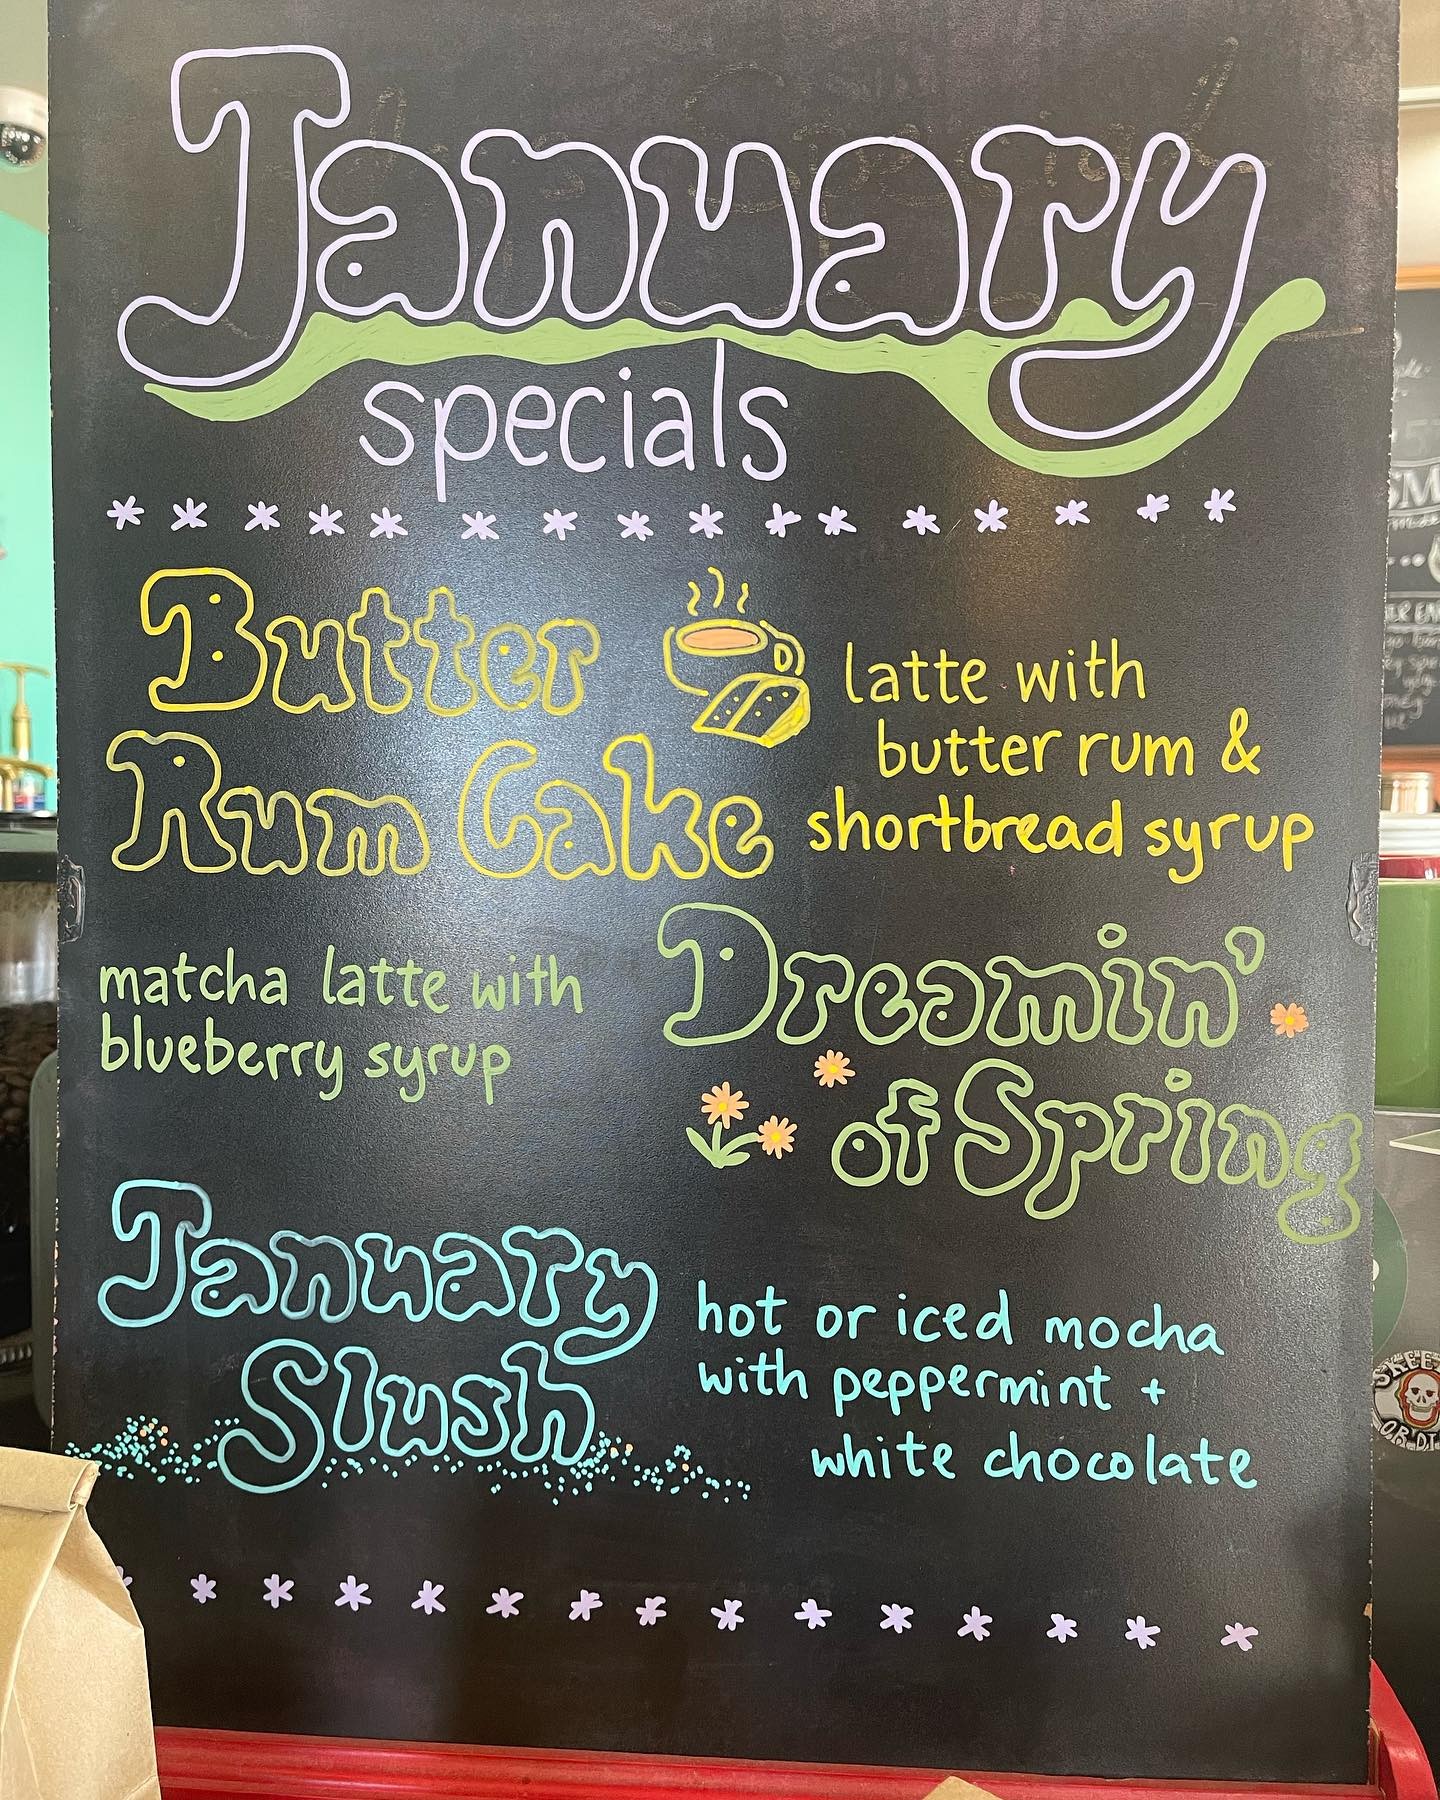 January
specials
Butter
Rum Cake
latte with
butter rum &
shortbread syrup
matcha latte with
blueberry syrup
Dreamin'
of Spring
January
Slush
hot or iced mocha
with peppermint +
white chocolate